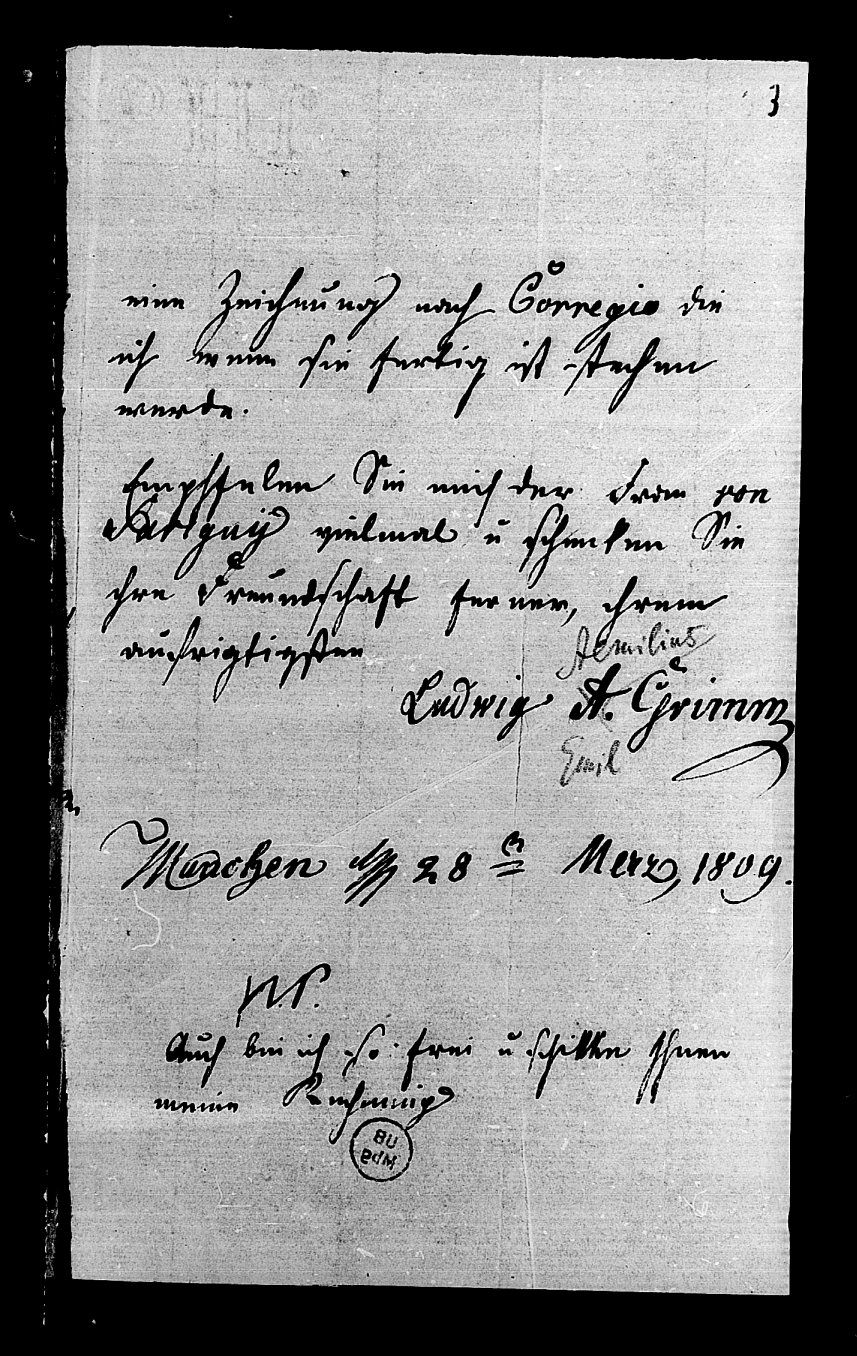 3
eine Zeichnung nach Corregio die
ich wenn sie fertig ist stechen
werde.
Empfhelen Sie mich der Frau von
Savigny vielmal u schenken Sie
ihre Freundschaft ferner, ihrem
aufrigtigsten
Aemilius
Ludwig A. Grimm
Emil
München 28 Merz, 1809.
N.S.
Auch bin ich so frei u schikke Ihnen
meine Rechnung
UB
Mbg